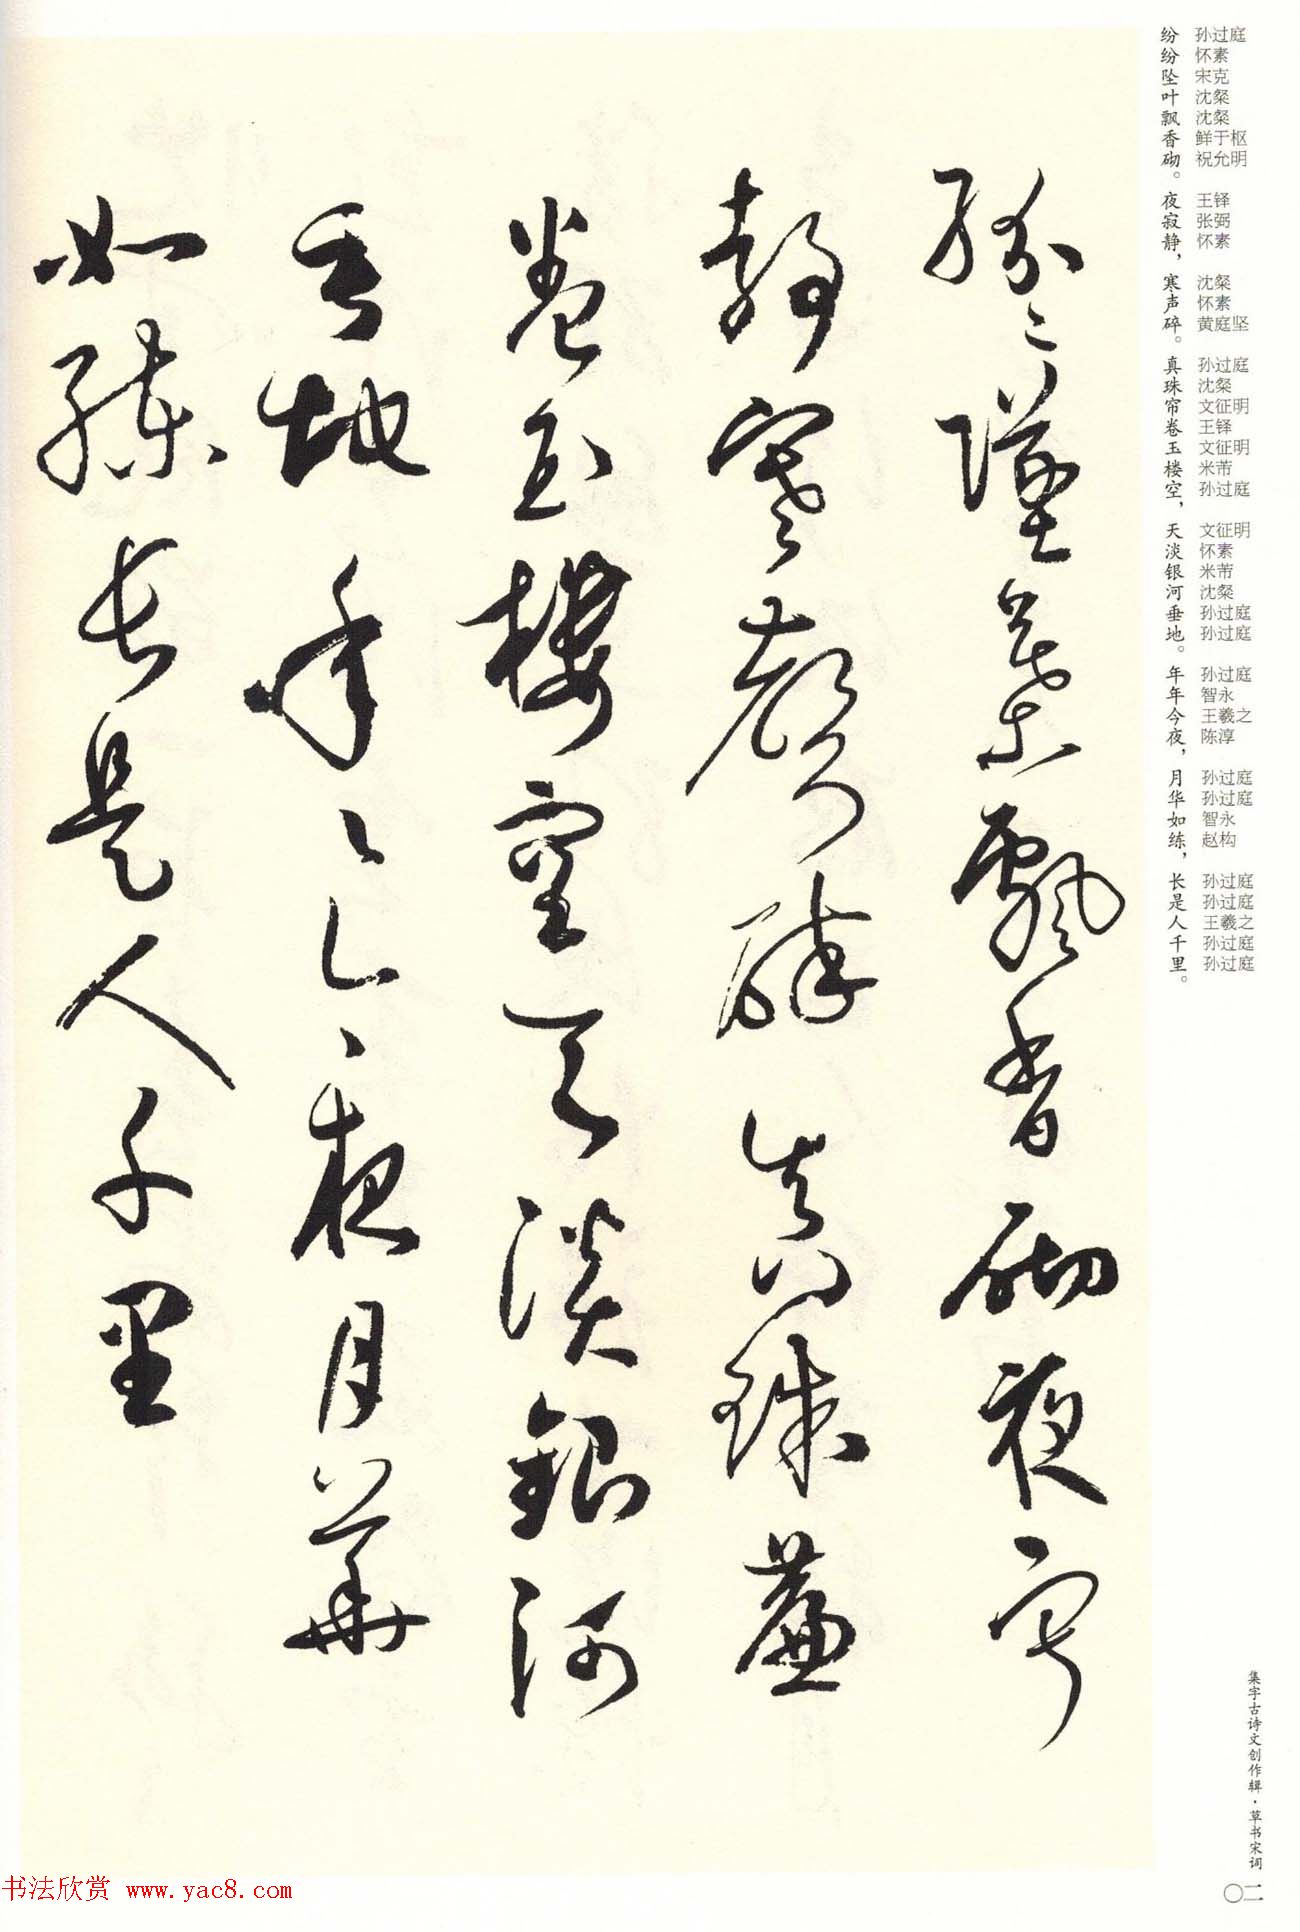 纷纷坠叶飘香砌。夜寂静，寒声碎。真珠帘卷玉楼空，天淡银河垂地。年年今夜，月华如练，长是人千里。
孙过庭 怀素 宋克 沈粲 沈粲 鲜于枢 祝允明 王铎 张弼 怀素 沈粲 怀素 黄庭坚 孙过庭 沈粲 文征明 王铎 文征明 米芾 孙过庭 文征明 怀素 米芾 沈粲 孙过庭 孙过庭 孙过庭 智永 王羲之 陈淳 孙过庭 孙过庭 智永 赵构 孙过庭 孙过庭 王羲之 孙过庭 孙过庭
紛〻墜葉飄香砌夜寂
静寒聲碎真珠簾
卷玉樓空天淡銀河
垂地年〻今夜月華
如練長是人千里
集字古诗文创作辑·草书宋词
〇二
书法欣赏 www.yac8.com